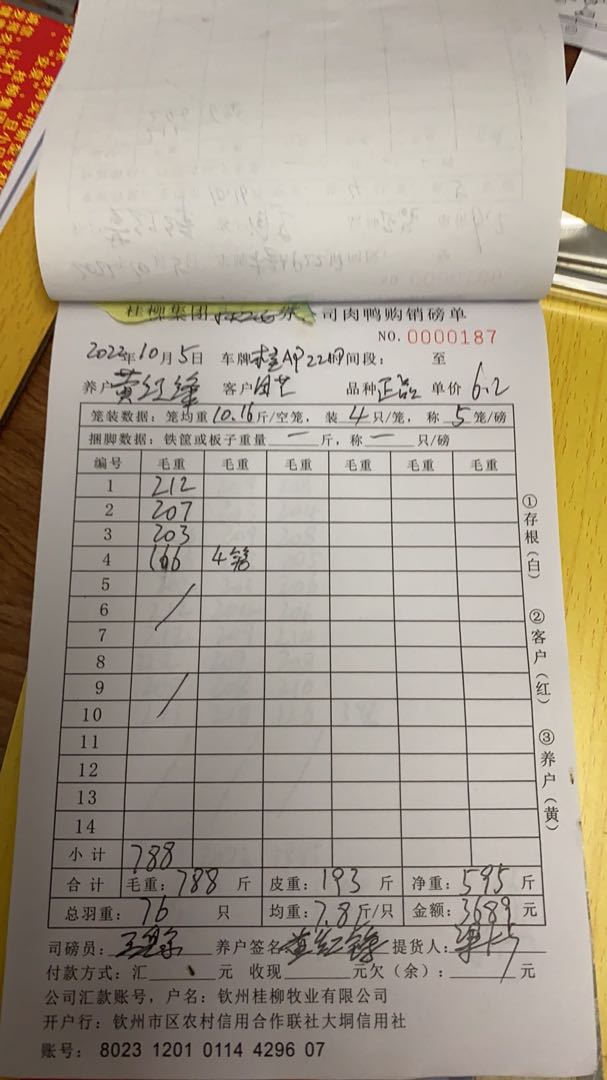 桂柳集团 司肉鸭购销磅单
NO. 0000187
2022年10月5日 车牌桂AP22 时间段： 至
养户黄红锋 客户 品种正品 单价6.2
笼装数据：笼均重10.16斤/空笼，装4只/笼，称5笼/磅
捆脚数据：铁筐或板子重量一斤，称一只/磅
编号 毛重 毛重 毛重 毛重 毛重 毛重
1 212
2 207
3 203
4 166 4笼
5
6
7
8
9
10
11
12
13
14
小计 788
合计 毛重：788斤 皮重：193斤 净重：595斤
总羽重：76只 均重：7.8斤/只 金额：3689元
司磅员： 养户签名黄红锋 提货人：
付款方式：汇 元 收现 元欠（余）： 元
公司汇款账号，户名：钦州桂柳牧业有限公司
开户行：钦州市区农村信用合作联社大垌信用社
账号：8023 1201 0114 4296 07
①存根（白）
②客户（红）
③养户（黄）